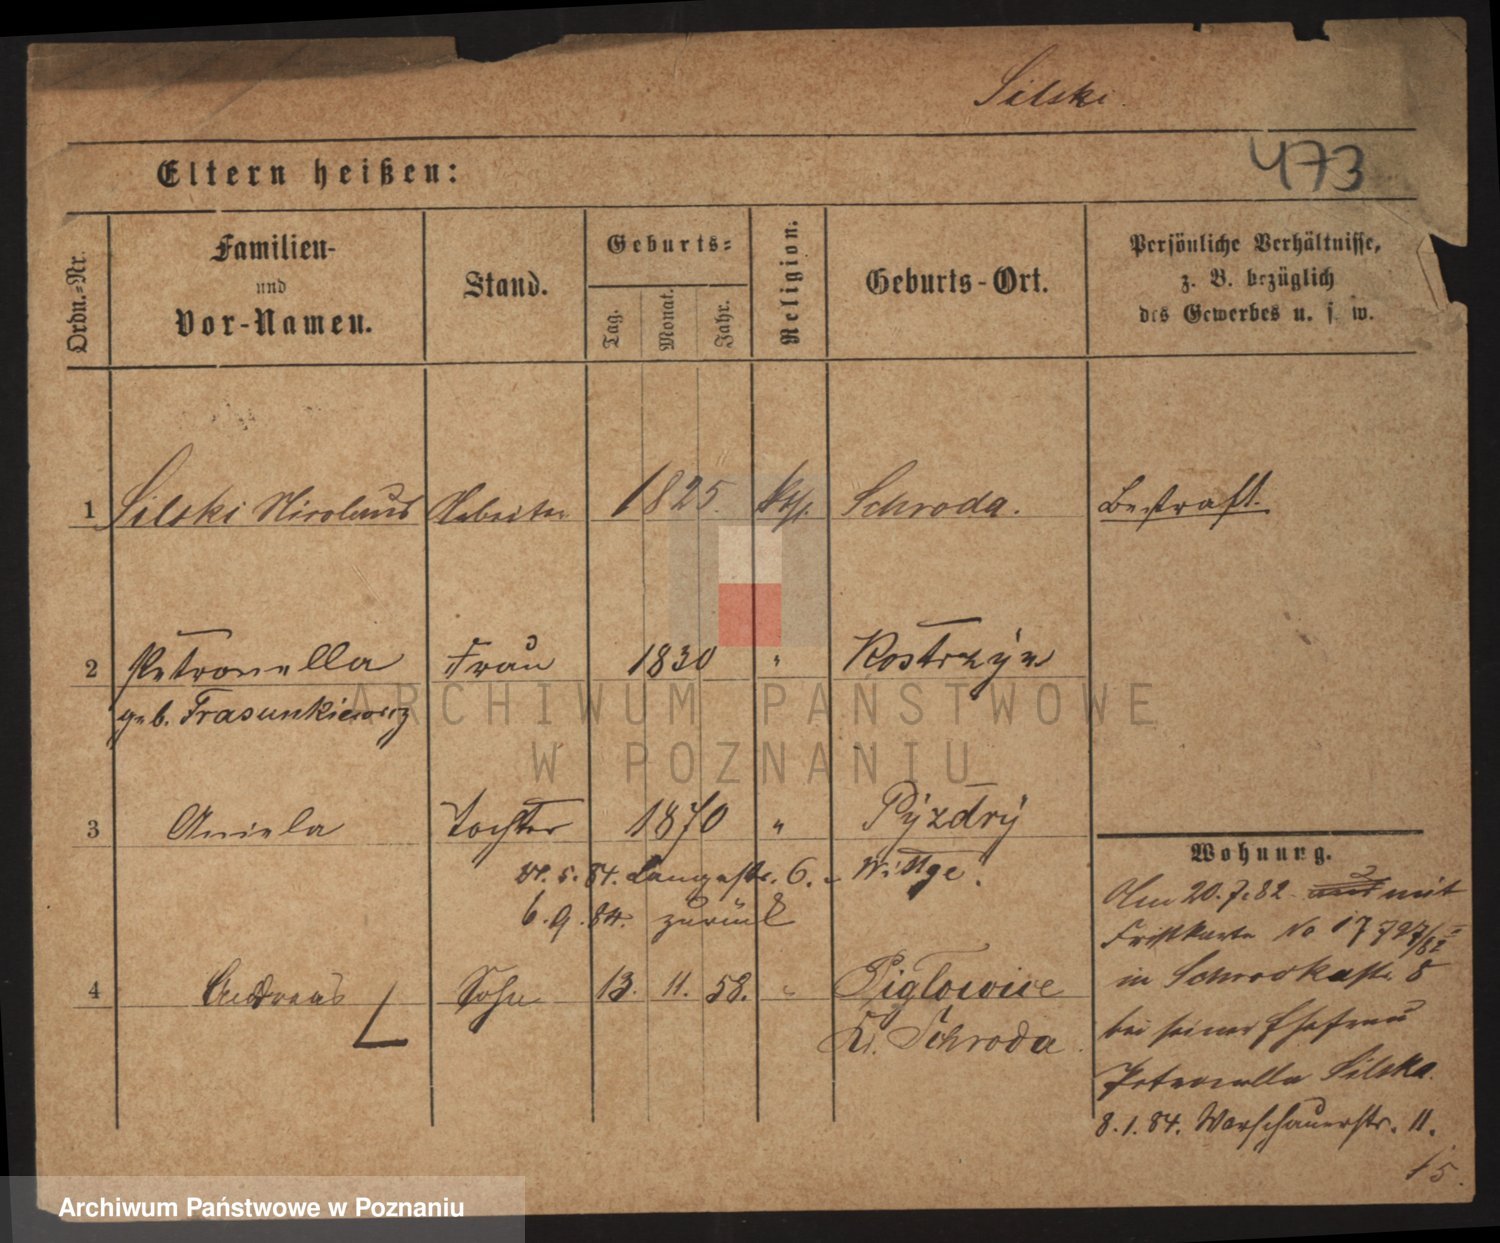 Silski
Eltern heißen:
473
Ordn.-Nr.
Familien-
und
Vor-Namen.
Stand.
Geburts-
Tag.
Monat.
Jahr.
Religion.
Geburts-Ort.
Persönliche Verhältnisse,
z. B. bezüglich
des Gewerbes u. s. w.
1 Silski Nicolaus Arbeiter 1825. Schroda. Bestraft.
2 Petronella Frau 1830 " Kostrzyn
geb. Frasunkiewicz
3 Aniela Tochter 1870 " Pyzdry
5. 84. Langestr. 6. Wittge.
6. 9. 84. zurück
4 Andreas Sohn 13. 11. 58. " Piglowice
Kr. Schroda.
Wohnung.
Am 20.7.82 mit
Fristkarte No
in 8
bei seiner Ehefrau
Petronella Silska.
8.1.84. Warschauerstr. 11.
15.
ARCHIWUM PAŃSTWOWE
W POZNANIU
Archiwum Państwowe w Poznaniu